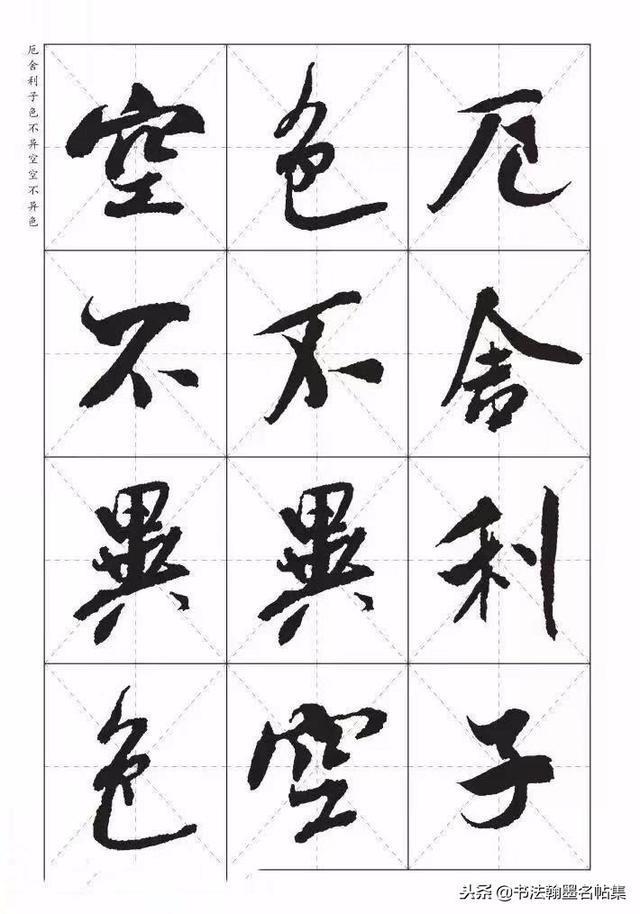 厄舍利子色不异空空不异色
厄舍利子
色不異空
空不異色
头条 @书法翰墨名帖集